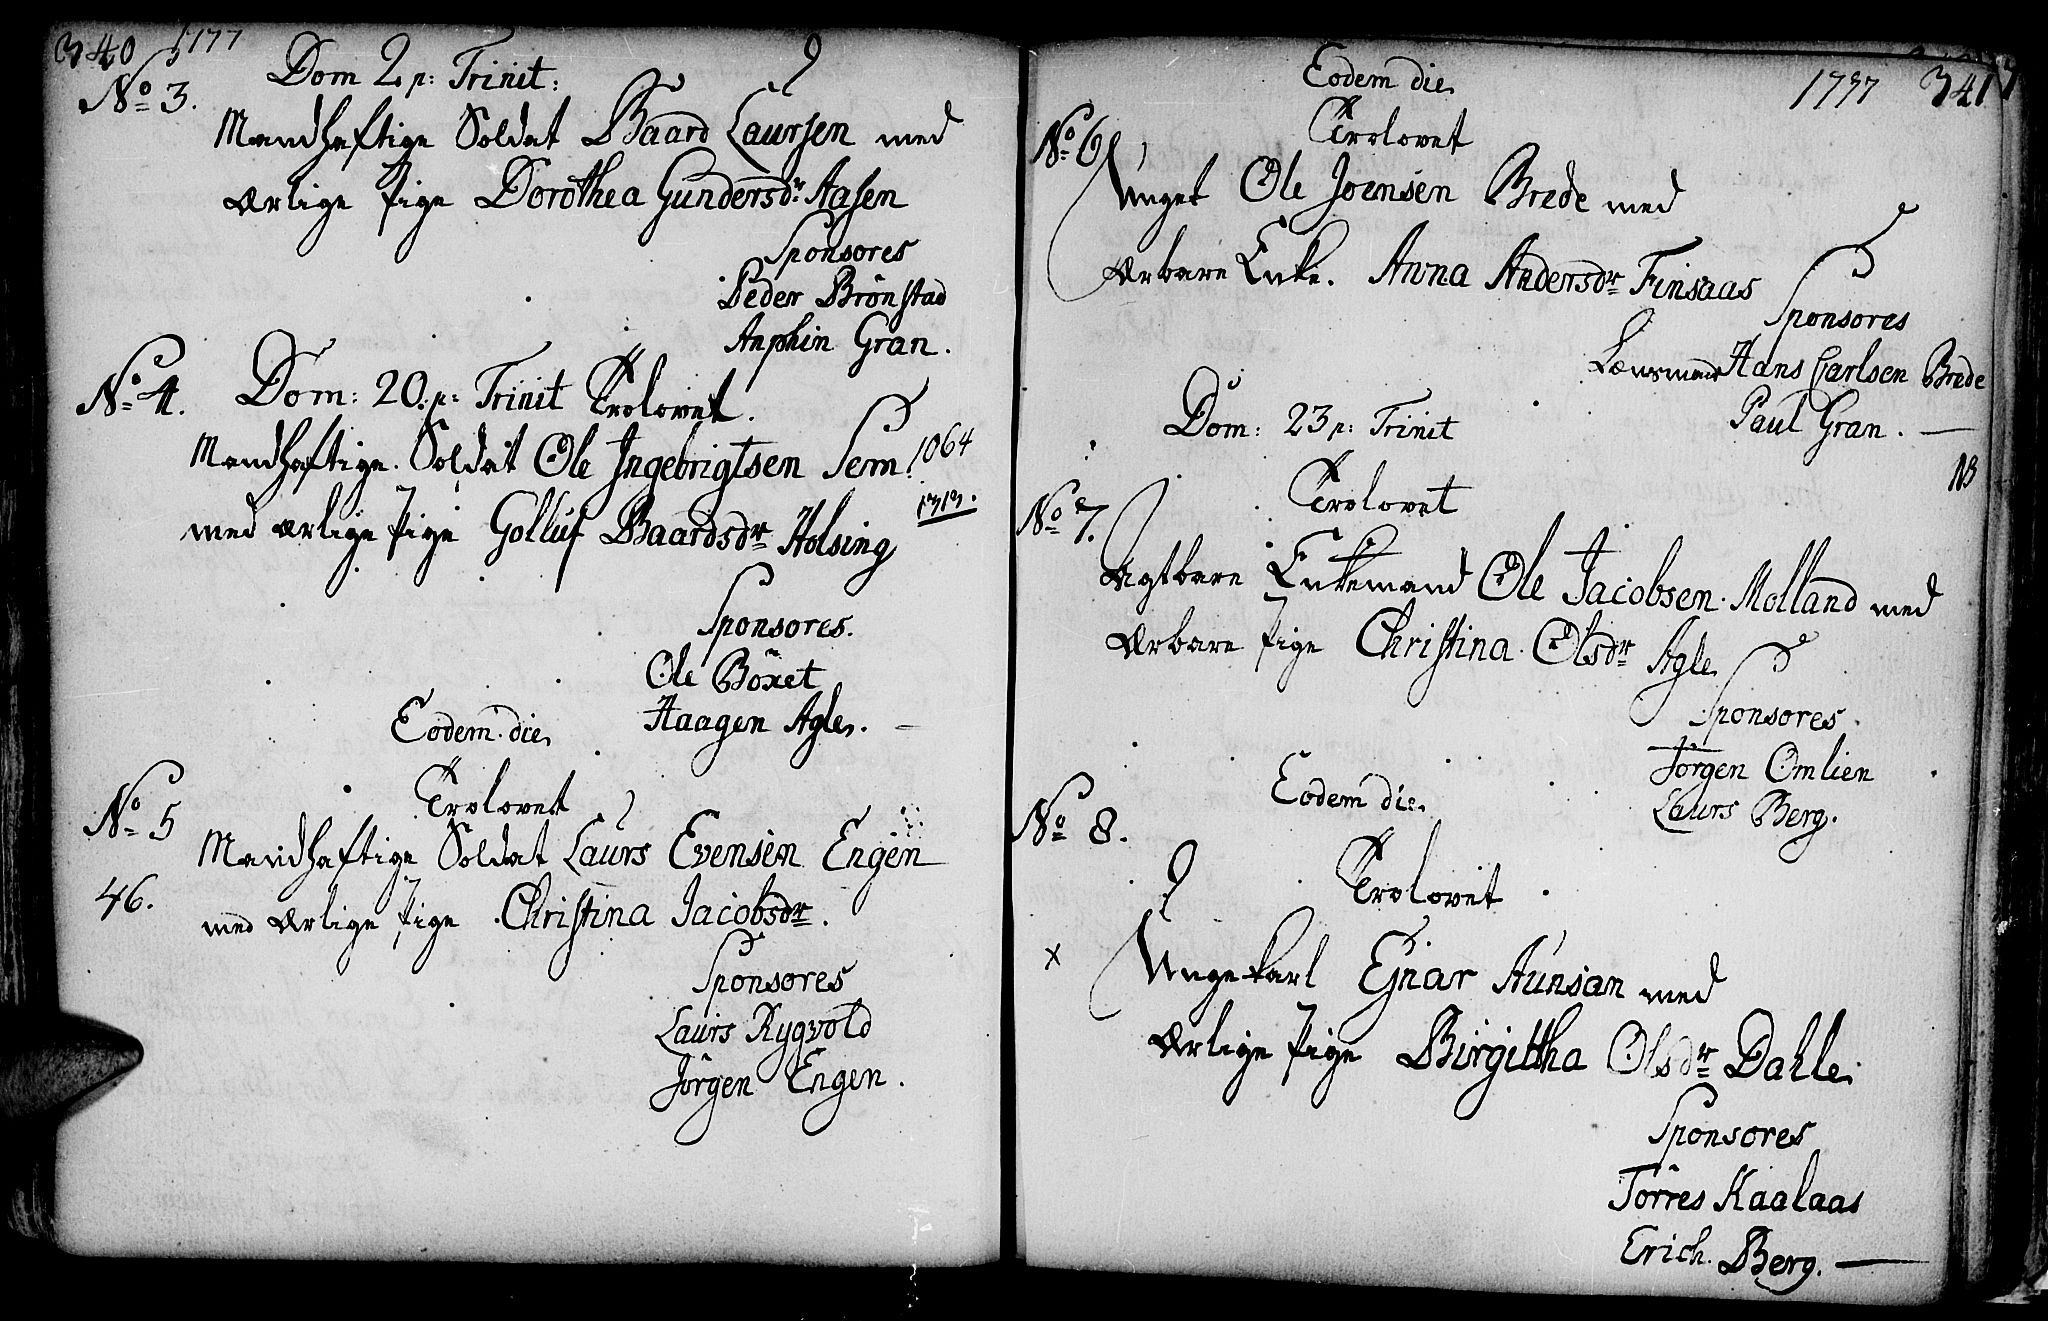 340 1777
Dom 2 p: Trinit:
No 3.
Mandhaftige Soldat Baard Laursen med
ærlige Pige Dorothea Gundersdr Aasen
Sponsores
Peder Brönstad
Anphin Gran.
No 4. Dom: 20. p: Trinit Trolovet.
Mandhaftige Soldat Ole Ingebrigtsen Sem 1064
med ærlige Pige Golluf Baardsdr Holsing
Sponsores.
Ole Böxet
Haagen Agle. —
Eodem die
Trolovet
No 5
Mandhaftige Soldat Laurs Evensen Engen
46.
med ærlige Pige Christina Jacobsdr.
Sponsores
Laurs Rygvold
Jörgen Engen.
Eodem die 1777 341
Trolovet
No 6
Unget Ole Joensen Brede med
ærbare Enke. Anna Andersdr Finsaas
Sponsores
Lænsmand Hans Carlsen Brede
Paul Gran. —
Dom: 23 p: Trinit
NB
Trolovet
No 7.
Agtbare Enkemand Ole Jacobsen Molland med
ærbare Pige Christina Olsdr Agle
Sponsores.
Jörgen Omlien
Laurs Berg.
Eodem die.
No 8.
Trolovet
x Unge karl Ejnar Aunsan med
ærlige Pige Birgittha Olsdr Dahle
Sponsores
Törres Kaalaas
Erich. Berg. —